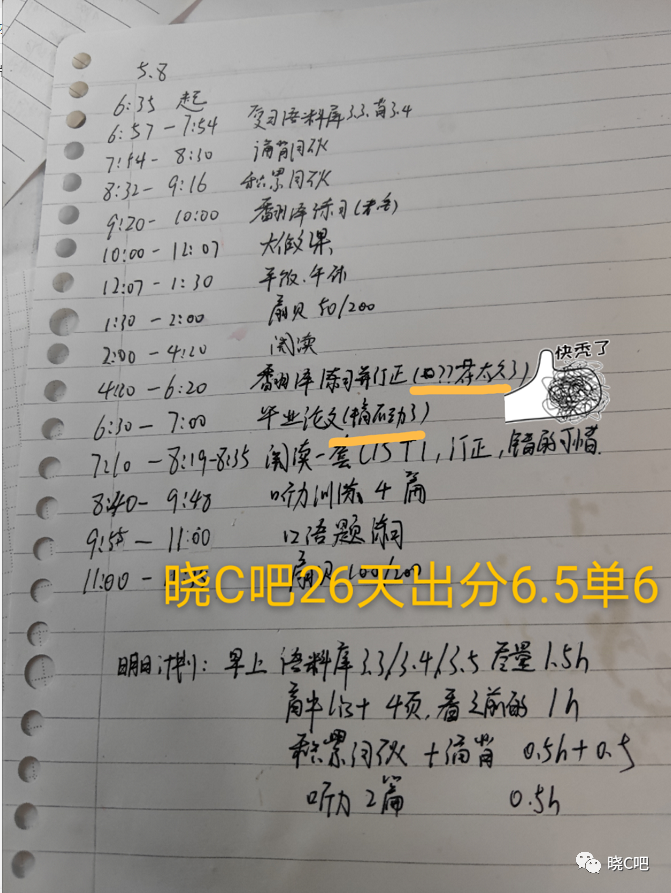 5.8
6:35 起
6:57 - 7:54 复习语料库 3.3.背3.4
7:54 - 8:30 诵背词伙
8:32 - 9:16 积累词伙
9:20 - 10:00 翻译练习
10:00 - 12:07 大作文课
12:07 - 1:30 午饭.午休
1:30 - 2:00 扇贝 50/200
2:00 - 4:20 阅读
4:20 - 6:20 翻译练习并订正
快秃了
6:30 - 7:00 毕业论文(搞不动了)
7:10 - 8:19-8:35 阅读一套 C15T1, 订正, 错的可惜.
8:40 - 9:48 听力训练 4 篇
9:55 - 11:00 口语题练习
11:00 - 扇贝
晓C吧26天出分6.5单6
明日计划: 早上 语料库 3.3/3.4/3.5 尽量 1.5h
4页, 看之前的 1h
积累词伙 + 诵背 0.5h + 0.5
听力 2篇 0.5h
晓C吧